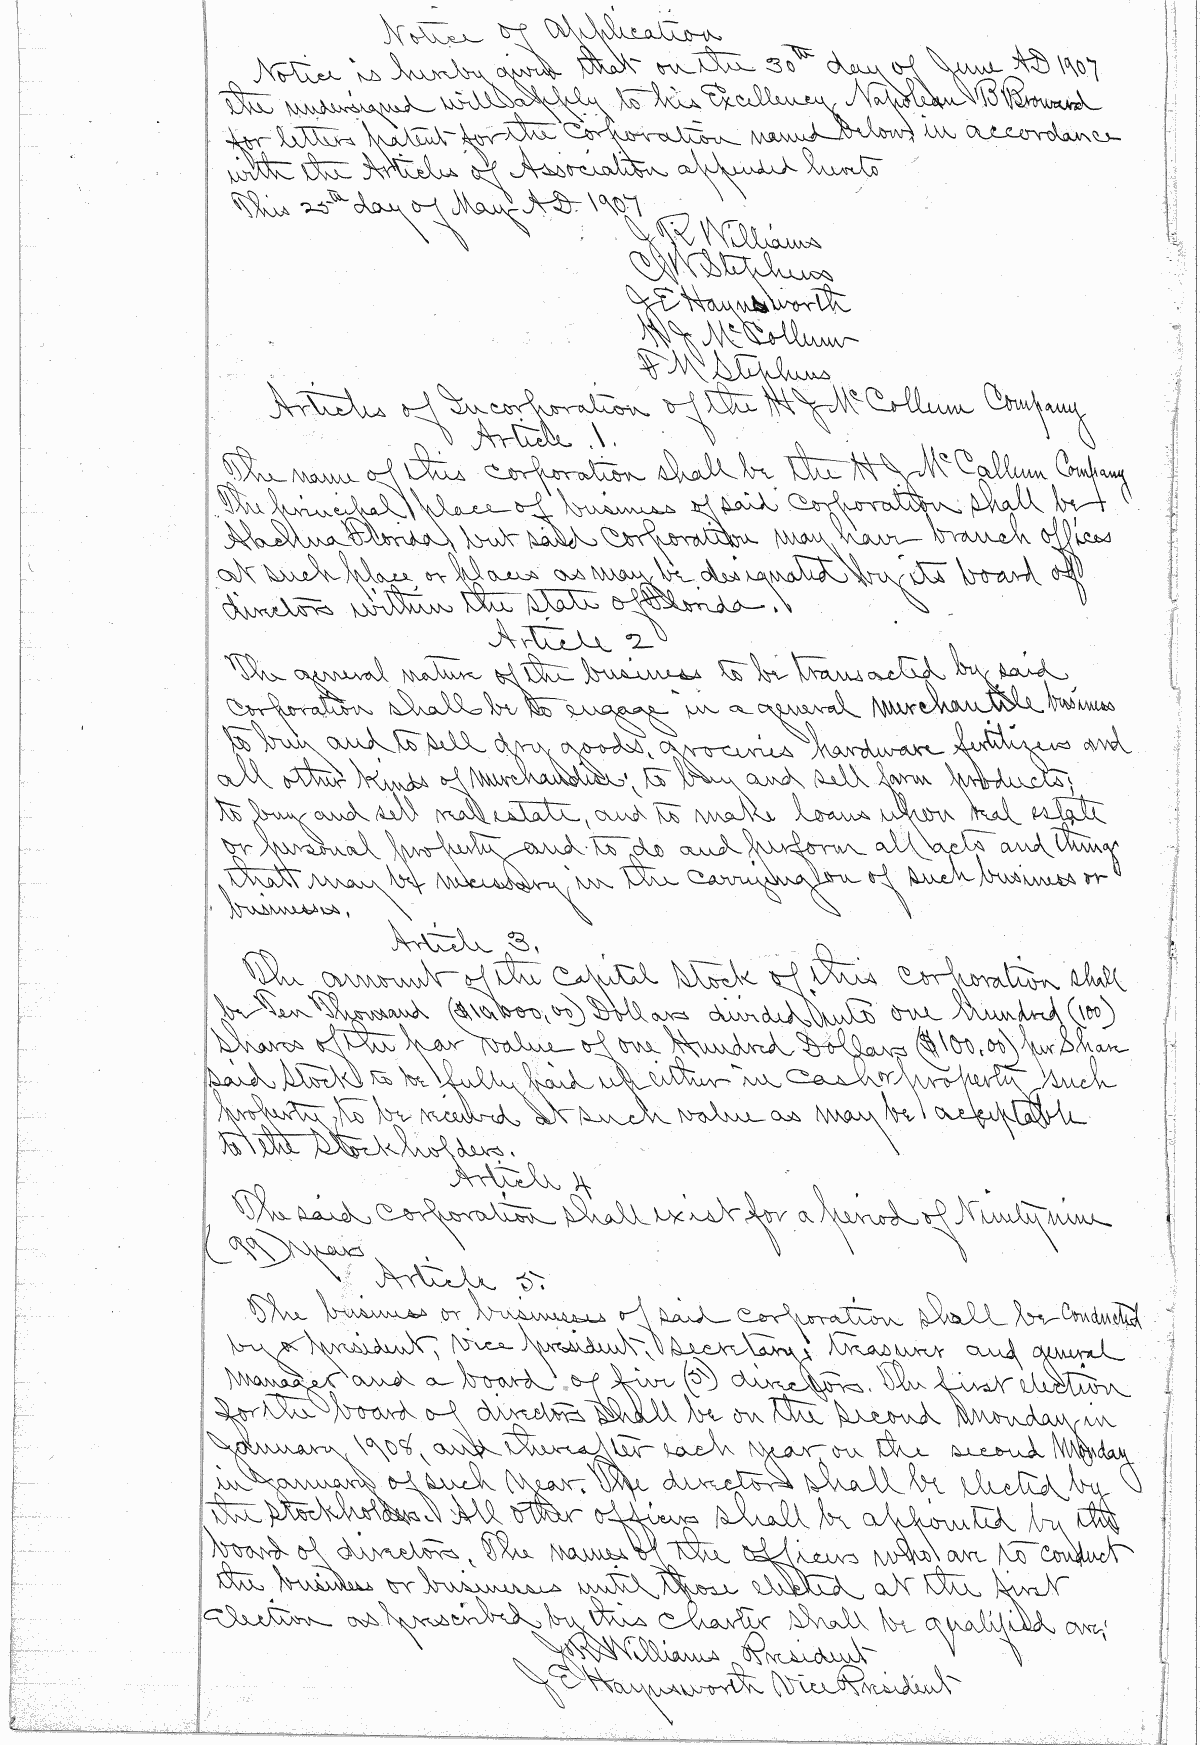 Notice of Application
Notice is hereby given that on the 30th day of June A.D. 1907
the undersigned will apply to his Excellency Napolean B Broward
for letters patent for the Corporation named below in accordance
with the Articles of Association appended hereto
This 25th day of May A.D. 1907
J R Williams
C W Stephens
J E Haynsworth
H J McCollum
F M Stephens
Articles of Incorporation of the H J McCollum Company
Article 1.
The name of this corporation shall be the H J McCallum Company
The principal place of business of said corporation shall be
Alachua Florida, but said corporation may have branch offices
at such place or places as may be designated by its board of
directors within the state of Florida.
Article 2
The general nature of the business to be transacted by said
corporation shall be to engage in a general merchantile business
to buy and to sell dry goods, groceries hardware fertilizers and
all other kinds of merchandise; to buy and sell farm products;
to buy and sell real estate, and to make loans upon real estate
or personal property and to do and perform all acts and things
that may be necessary in the carrying on of such business or
businesses.
Article 3.
The amount of the capital stock of this corporation shall
be Ten Thousand ($10,000,00) Dollars divided into one hundred (100)
shares of the par value of one Hundred Dollars ($100,00) per Share
said stock to be fully paid up either in cash or property such
property to be received at such value as may be acceptable
to the stockholders.
Article 4
The said corporation shall exist for a period of Ninety nine
(99) years
Article 5.
The business or businesses of said corporation shall be conducted
by a president, vice president, secretary; treasurer and general
manager and a board of five (5) directors. The first election
for the board of directors shall be on the second Monday in
January 1908, and thereafter each year on the second Monday
in January of such year. The directors shall be elected by
the stockholders. All other officers shall be appointed by the
board of directors. The names of the officers who are to conduct
the business or businesses until those elected at the first
election as prescribed by this charter shall be qualified are;
J R Williams President
J E Haynsworth Vice President